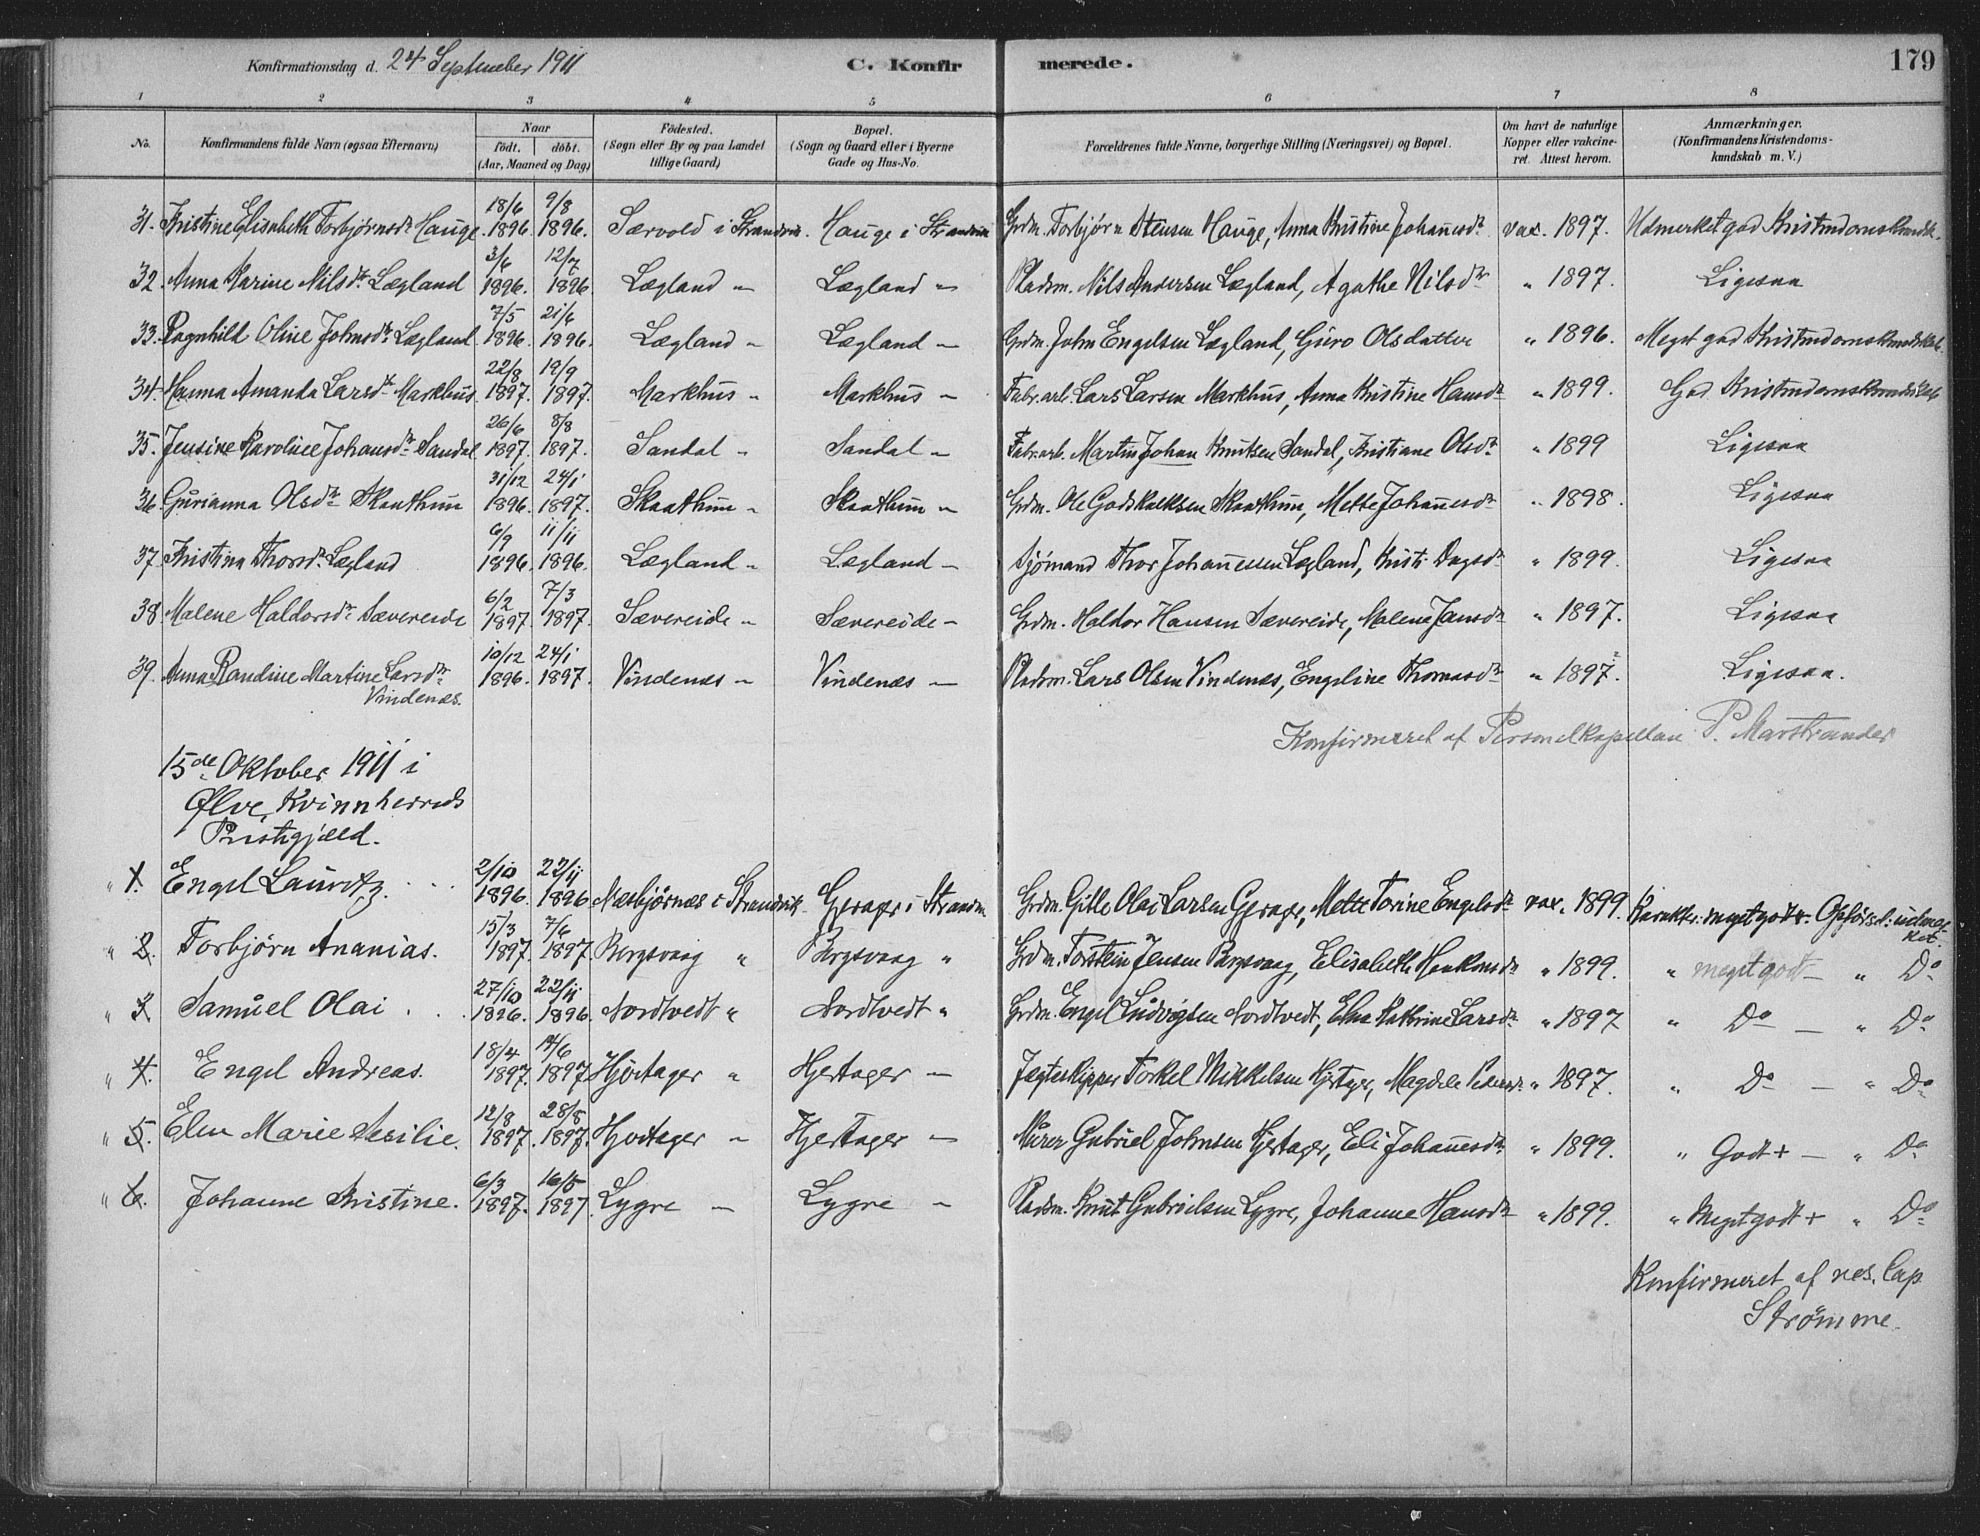 Konfirmationsdag d. 24 September 1911 C. Konfirmerede. 179
1 2 3 4 5 6 7 8
No. Konfirmandens fulde Navn (ogsaa Efternavn) Naar födt. döbt. (Aar, Maaned og Dag) Födested. (Sogn eller By og paa Landet tillige Gaard) Bopæl. (Sogn og Gaard eller i Byerne Gade og Hus-No. Forældrenes fulde Navne, borgerlige Stilling (Næringsvei) og Bopæl. Om havt de naturlige Kopper eller vakcineret. Attest herom. Anmærkninger. (Konfirmandens Kristendomskundskab m. V.)
31. Kristine Elisabeth Torbjørnsdr Hauge 18/6 1896. 9/8 1896. Særvold i Strandvik. Hauge i Strandvik Grdm. Torbjørn Stensen Hauge, Anna Kristine Johannesdr vax. 1897. Udmerket god Kristendomskundsk.
32. Anna Karine Nilsdr Lægland 3/6 1896. 12/7 1896. Lægland " Lægland " Pladsm. Nils Andersen Lægland, Agathe Nilsdr " 1897. Ligesaa
33. Ragnhild Oline Johnsdr Lægland 7/5 1896. 21/6 1896. Lægland " Lægland " Grdm. John Engelsen Lægland, Guro Olsdatter " 1896. Meget god Kristendomskundskab.
34. Hanna Amanda Larsdr Markhus 22/8 1897. 19/9 1897. Markhus " Markhus " Fabr.arb. Lars Larsen Markhus, Anna Kristine Hansdr " 1899. God Kristendomskundskab
35. Jensine Karoline Johansdr Sandal 26/6 1897. 8/8 1897. Sandal " Sandal " Fabr.arb. Martin Johan Knutsen Sandal, Kristiane Olsdr " 1899 Ligesaa
36. Gurianna Olsdr Skaathun 31/12 1896. 24/1 1897. Skaathun " Skaathun " Grdm. Ole Godskalksen Skaathun, Mette Johannesdr " 1898. Ligesaa
37. Kristina Thorsdr Lægland 6/9 1896. 11/11 1896. Lægland " Lægland " Sjømand Thor Johannessen Lægland, Kristi Dagsdr " 1899. Ligesaa
38. Malene Haldorsdr Sævereide 6/2 1897. 7/3 1897. Sævereide " Sævereide " Grdm. Haldor Hansen Sævereide, Malena Jansdr " 1897. Ligesaa
39. Anna Randine Martine Larsdr 10/12 1896. 24/1 1897. Vindenæs " Vindenæs " Pladsm. Lars Olsen Vindenæs, Engeline Thomasdr " 1897. Ligesaa.
Vindenæs.
Konfirmeret af Personelkapellan P. Marstrander
15de Oktober 1911 i
Ølve, Kvinnherreds
Prestegjæld.
" 1. Engel Lauritz. 2/10 1896. 22/11 1896 Næsbjørnæs i Strandvik Gjerager i Strandv. Grdm. Gitle Olai Larsen Gjerager, Mette Torine Engelsdr vax. 1899. Karakter: meget godt. Opførsel: udmerket.
" 2. Torbjørn Ananias. 15/3 1897. 7/6 1897. Bergsvaag " Bergsvaag " Grdm. Torstein Jensen Bergsvaag, Elisabeth Haakonsdr " 1899. " meget godt — " Do
" 3. Samuel Olai 27/10 1896. 22/11 1896. Nordtvedt " Nordtvedt " Grdm. Engel Ludvigsen Nordtvedt, Elna Kathrine Larsdr " 1897 " Do — " Do
" 4. Engel Andreas. 18/4 1897. 1897 Hjertager " Hjertager " Jægteskipper Torkel Mikkelsen Hjertager, Magdele Pedersdr " 1897. " Do — " Do
" 5. Elen Marie Sesilie. 12/8 1897. 28/8 1897. Hjertager " Hjertager " Murer Gabriel Johnsen Hjertager, Eli Johannesdr " 1899. " Godt + — " Do
" 6. Johanne Kristine. 6/3 1897. 16/5 1897. Lygre " Lygre " Pladsm. Knut Gabrielsen Lygre, Johanne Hansdr " 1899. " Meget godt + " Do
Konfirmeret af res. Cap
Strømme.